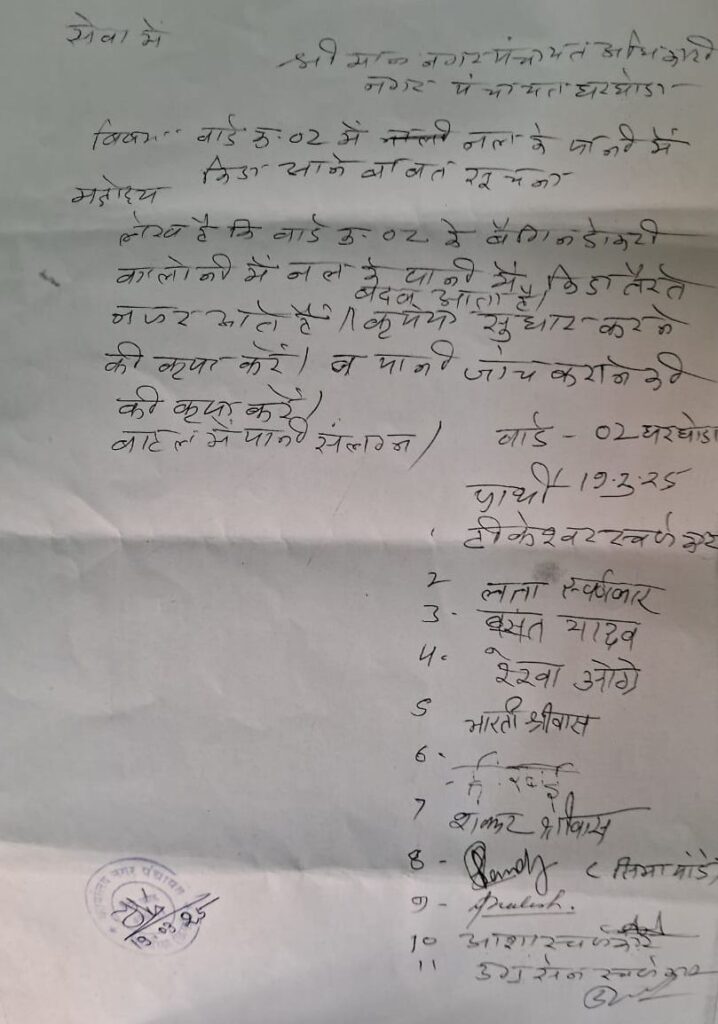 सेवा में
श्री मान नगर पंचायत अधिकारी
नगर पंचायत घरघोडा
विषय:- वार्ड क्र. 02 में नल के पानी में
किडा आने बाबत सूचना
महोदय
लेख है कि वार्ड क्र. 02 के बैगिन डोकरी
कालोनी में नल के पानी में किडा तैरते
बदबू आता है।
नजर आते है। कृपया सुधार करने
की कृपा करें। व पानी जांच कराने की
की कृपा करें।
बाटल में पानी संलग्न।
वार्ड - 02 घरघोडा
प्रार्थी 19.3.25
1 टीकेश्वर स्वर्णकार
2 लता स्वर्णकार
3. बसंत यादव
4. रेखा ओगे
5 भारती श्रीवास
6.
7 शंकर श्रीवास
8 - (सिमा पांडे)
9 - Prakash.
10 आशा स्वर्णकार
11 उग्रसेन स्वर्णकार
कार्यालय नगर पंचायत
19.03.25